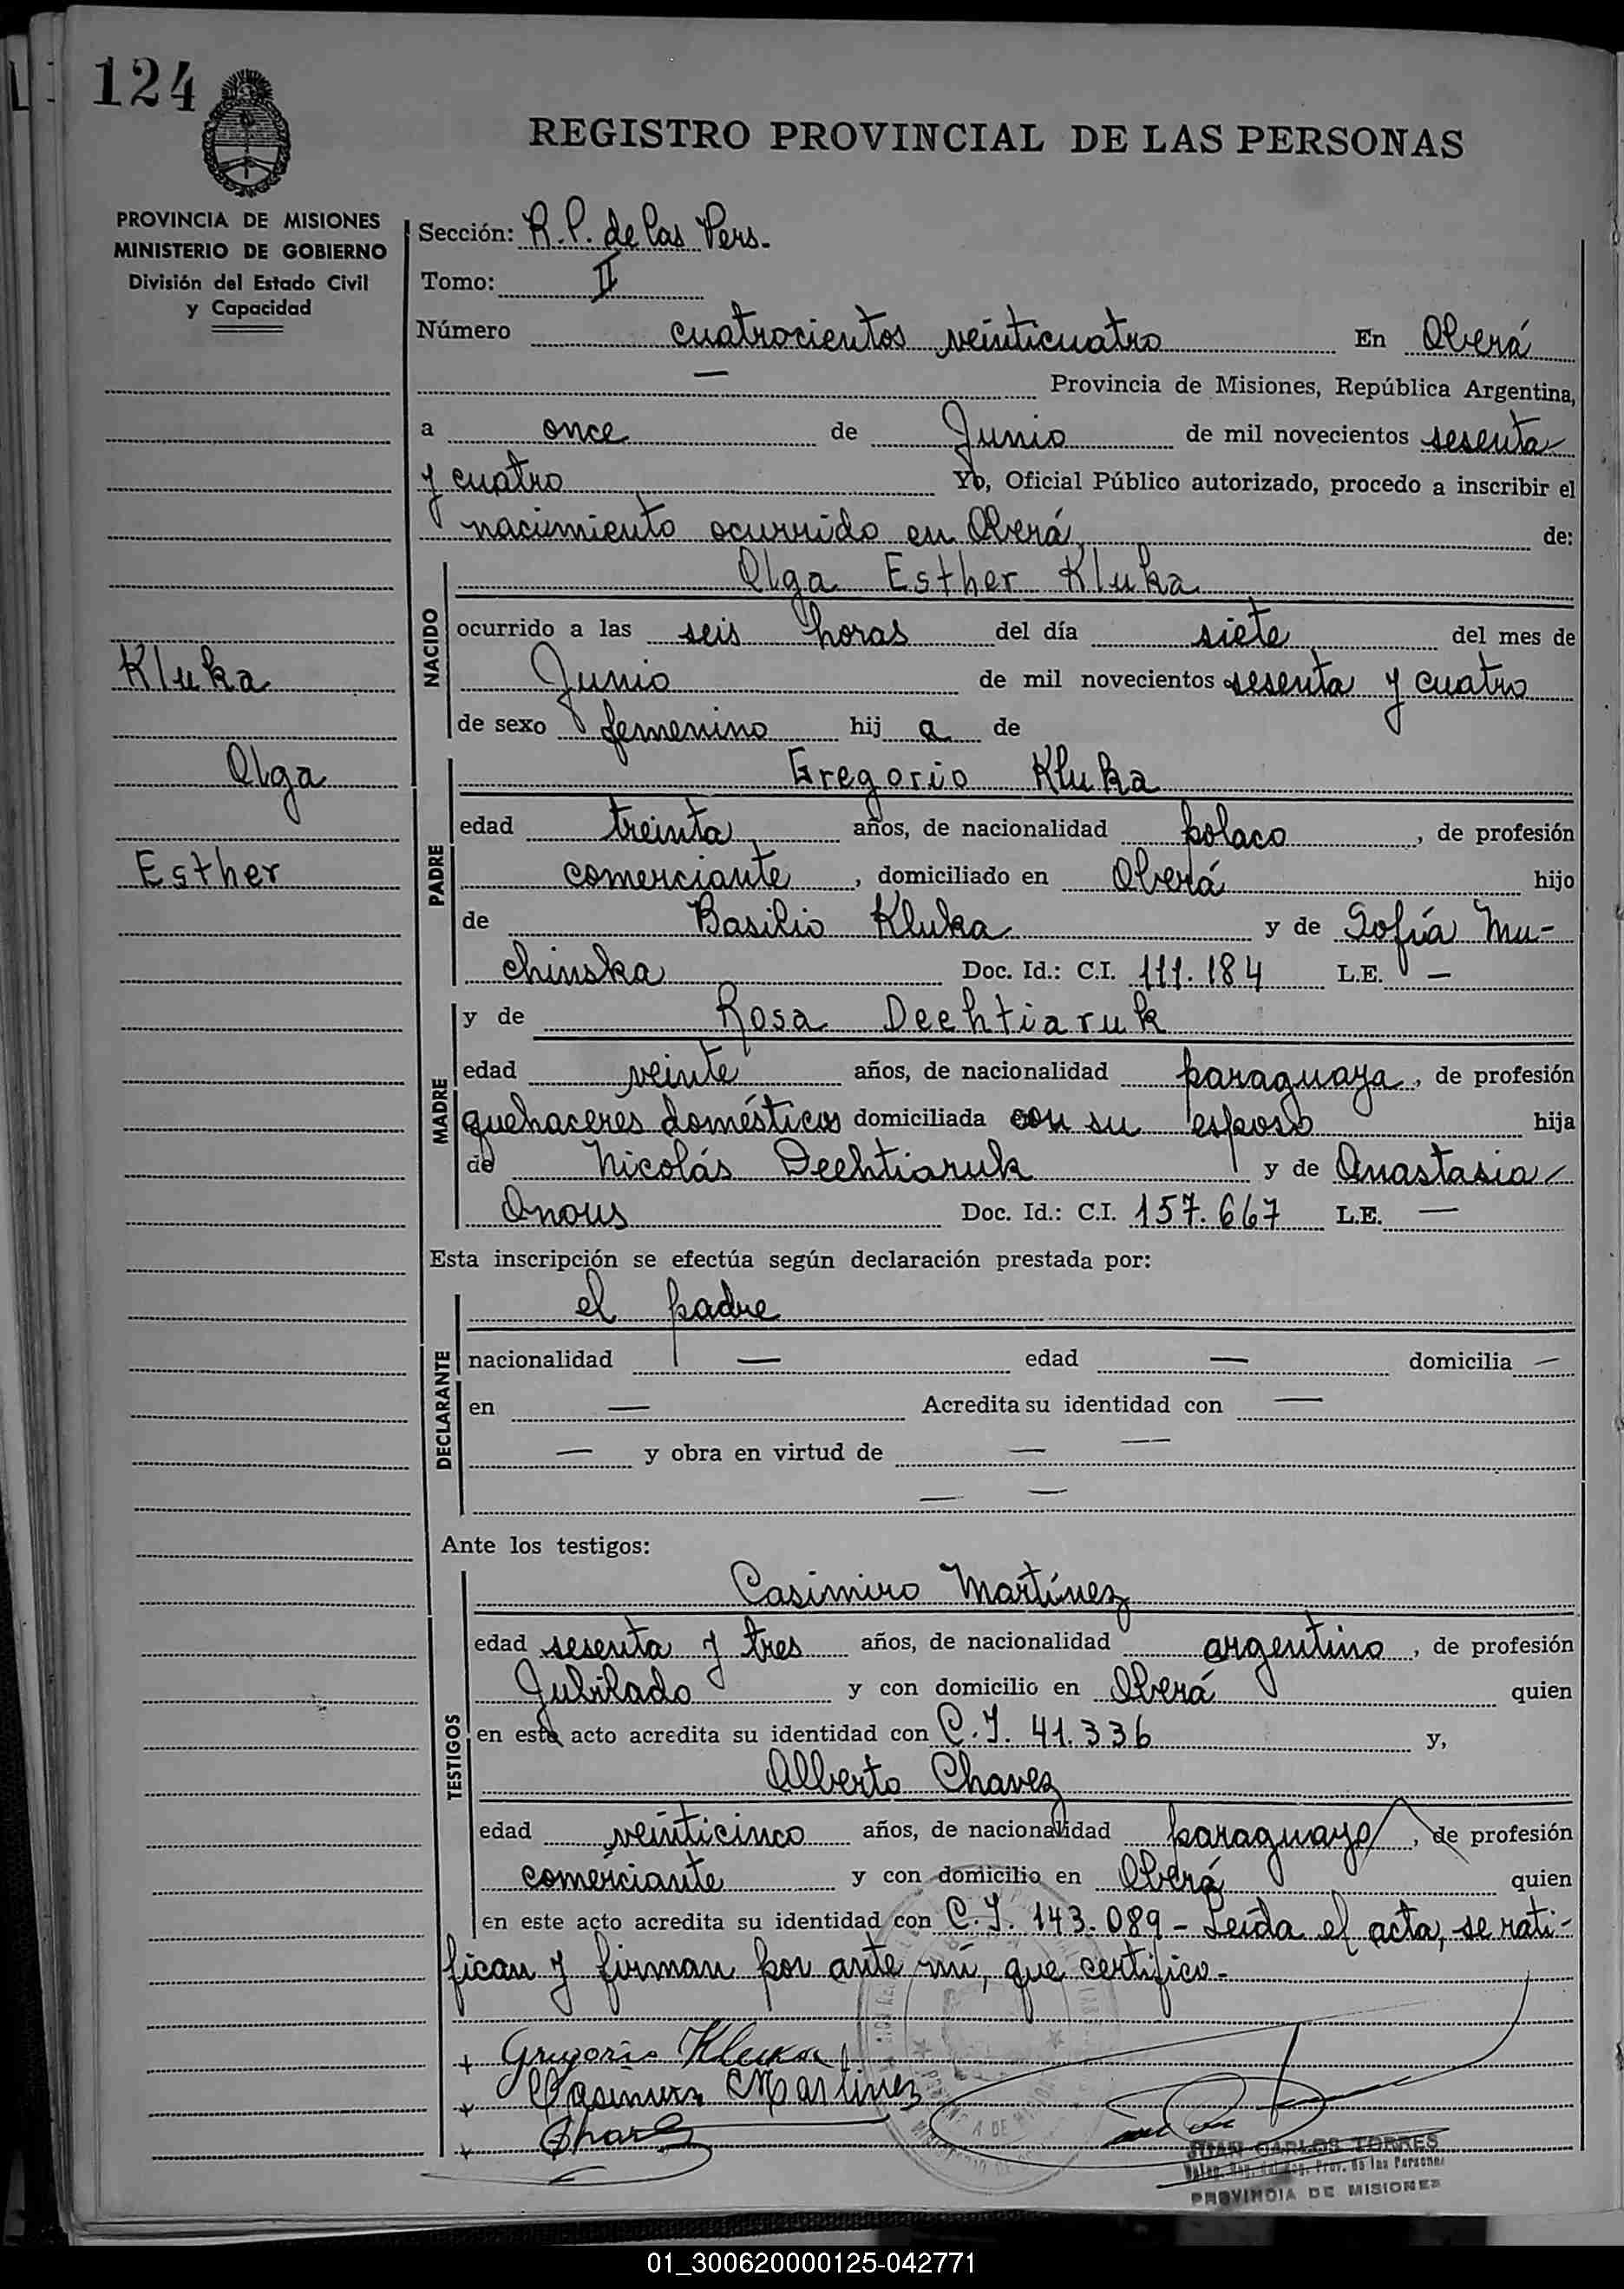 124
REGISTRO PROVINCIAL DE LAS PERSONAS
PROVINCIA DE MISIONES
MINISTERIO DE GOBIERNO
División del Estado Civil
y Capacidad
Kluka
Olga
Esther
Sección: R.P. de las Pers.
Tomo: II
Número cuatrocientos veinticuatro En Oberá
— Provincia de Misiones, República Argentina,
a once de Junio de mil novecientos sesenta
y cuatro Yo, Oficial Público autorizado, procedo a inscribir el
nacimiento ocurrido en Oberá de:
NACIDO
Olga Esther Kluka
ocurrido a las seis horas del día siete del mes de
Junio de mil novecientos sesenta y cuatro
de sexo femenino hij a de
PADRE
Gregorio Kluka
edad treinta años, de nacionalidad polaco, de profesión
comerciante, domiciliado en Oberá hijo
de Basilio Kluka y de Sofía Mu-
chinska Doc. Id.: C.I. 111.184 L.E. —
MADRE
y de Rosa Dechtiaruk
edad veinte años, de nacionalidad paraguaya, de profesión
quehaceres domésticos domiciliada con su esposo hija
de Nicolás Dechtiaruk y de Anastasia
Onous Doc. Id.: C.I. 157.667 L.E. —
Esta inscripción se efectúa según declaración prestada por:
DECLARANTE
el padre
nacionalidad — edad — domicilia —
en — Acredita su identidad con —
— y obra en virtud de — —
— —
Ante los testigos:
TESTIGOS
Casimiro Martínez
edad sesenta y tres años, de nacionalidad argentino, de profesión
Jubilado y con domicilio en Oberá quien
en este acto acredita su identidad con C.I. 41.336 y,
Alberto Chavez
edad veinticinco años, de nacionalidad paraguayo, de profesión
comerciante y con domicilio en Oberá quien
en este acto acredita su identidad con C.I. 143.089 - Leída el acta, se rati-
fican y firman por ante mí, que certifico.-
+ Gregorio Kluka
+ Casimiro Martinez
+ Chavez
JUAN CARLOS TORRES
Prov. de las Personas
PROVINCIA DE MISIONES
01_300620000125-042771